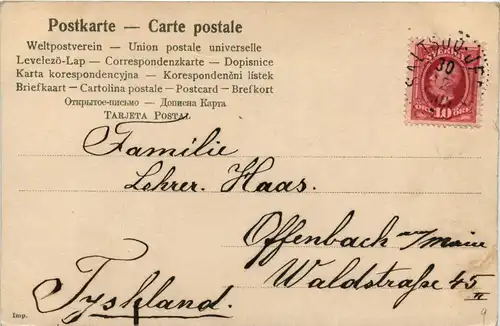 Postkarte — Carte postale
Weltpostverein — Union postale universelle
Levelező-Lap — Correspondenzkarte — Dopisnice
Karta korespondencyjna — Korespondenční lístek
Briefkaart — Cartolina postale — Postcard — Brefkort
Открытое-письмо — Дописна Карта
TARJETA POSTAL
30
10
Familie
Lehrer. Haas.
Offenbach am/Main
Waldstraße 45
II
Tyskland.
Imp.
9